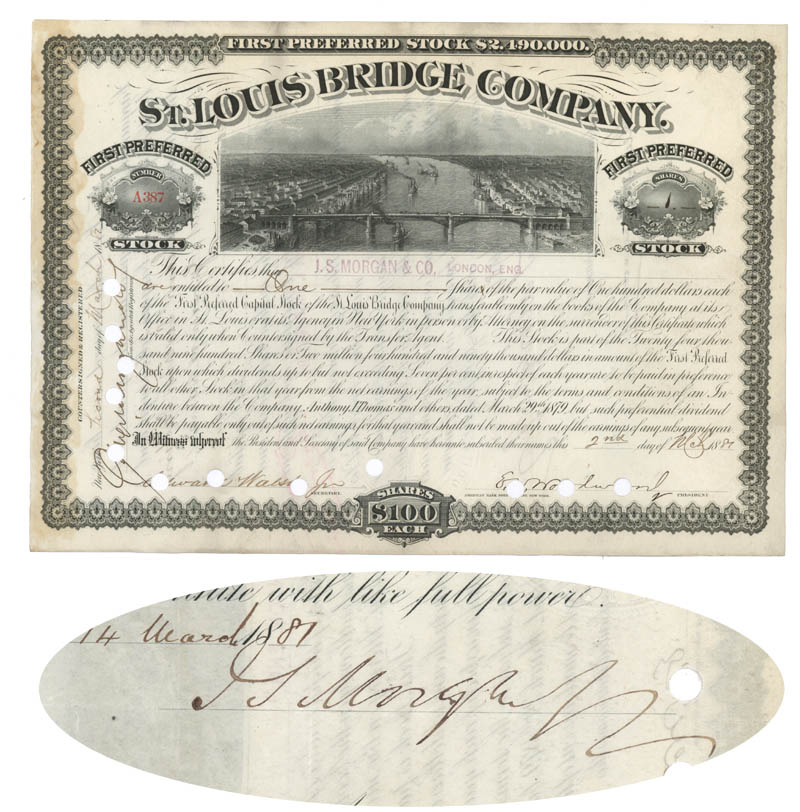 FIRST PREFERRED STOCK $2,490,000.
ST. LOUIS BRIDGE COMPANY.
FIRST PREFERRED
NUMBER
A387
STOCK
FIRST PREFERRED
SHARES
1
STOCK
This Certifies that J. S. MORGAN & CO, LONDON, ENG.
are entitled to One Shares of the par value of One hundred dollars each
of the First Preferred Capital Stock of the St. Louis Bridge Company transferable only on the books of the Company at its
Office in St. Louis or at its Agency in New York in person or by Attorney on the surrender of this Certificate which
is valid only when Countersigned by the Transfer Agent. This Stock is part of the Twenty four thou
sand nine hundred Shares or Two million four hundred and ninety thousand dollars in amount of the First Preferred
Stock upon which dividends up to but not exceeding Seven per cent in respect of each year are to be paid in preference
to all other Stock in that year from the net earnings of the year, subject to the terms and conditions of an In
denture between the Company, Anthony J. Thomas and others, dated March 29th 1879, but such preferential dividend
shall be payable only out of such net earnings for that year and shall not be made up out of the earnings of any subsequent year.
In Witness whereof the President and Secretary of said Company have hereunto subscribed their names this 2nd day of Mch 1881
COUNTERSIGNED & REGISTERED
this second day of March
Edward Walsh Jr
SECRETARY.
AMERICAN BANK NOTE CO. NEW YORK.
PRESIDENT
SHARES
$100
EACH
with like full power.
14 March 1881
J S Morgan